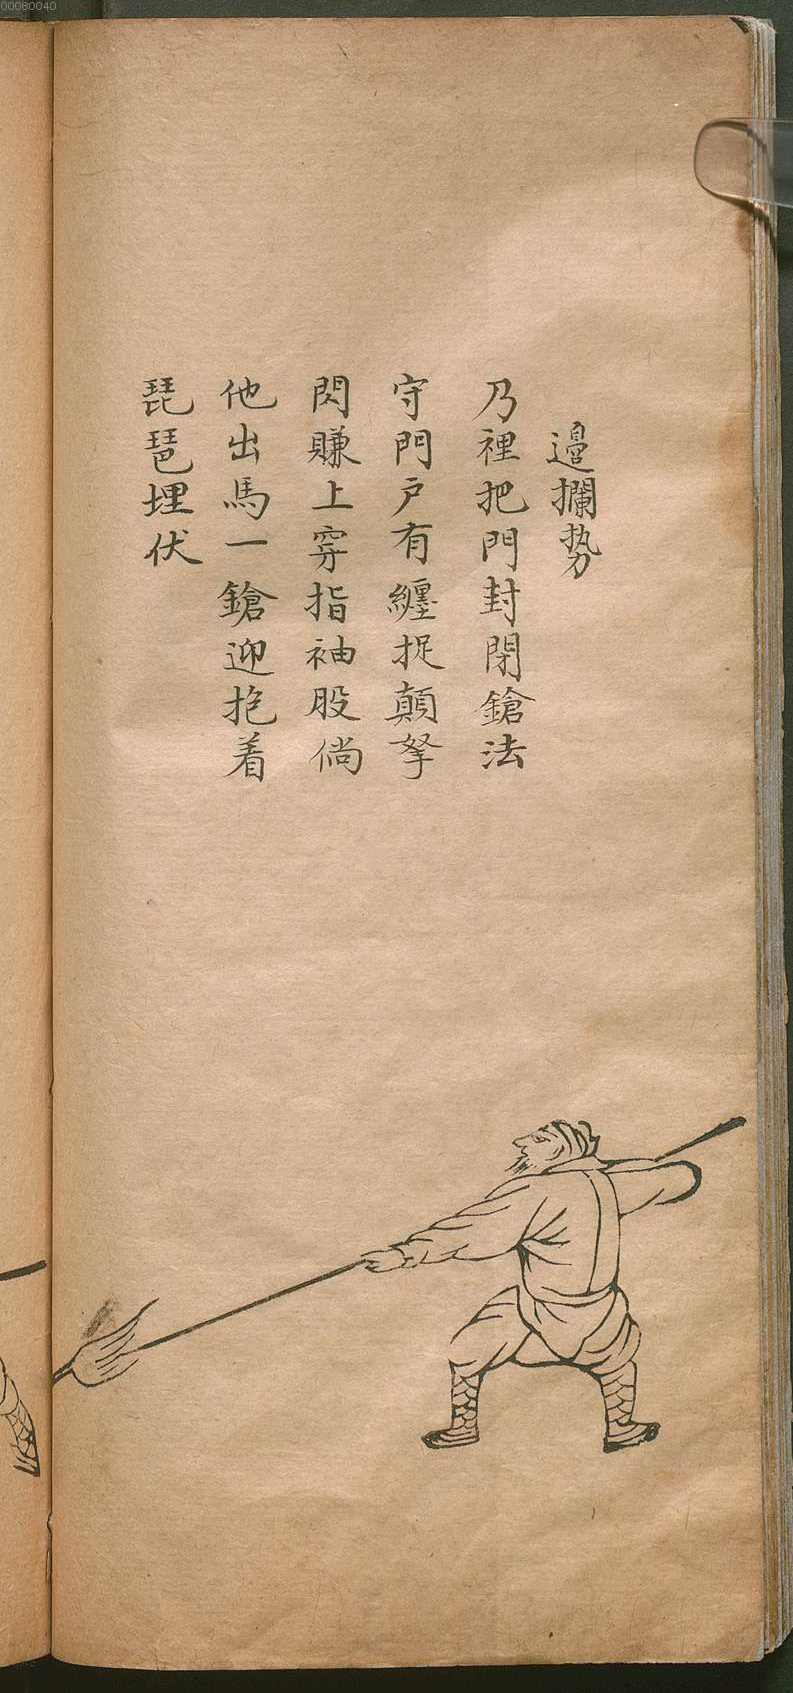 00080040
邉攔势
乃裡把門封閉鎗法
守門戸有纏捉顛拏
閃賺上穿指袖股倘
他出馬一鎗迎抱着
琵琶埋伏